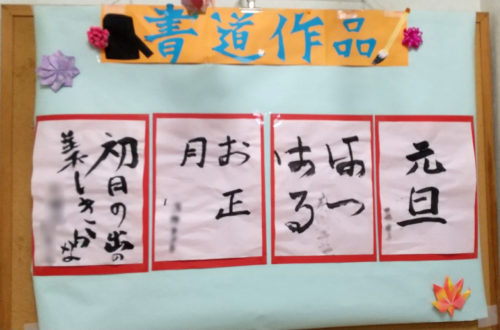 書道作品
元旦
はつ
はる
お正
月
初日の出の
美しきかな